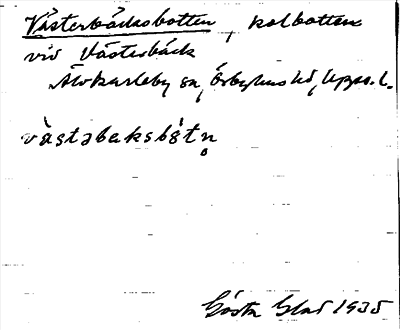 Västerbäcksbotten, kolbotten
vid Västerbäck
Älvkarleby sn, Örbyhus hd, Upps. l.
vàstəbeksbót
Gösta Glad 1935